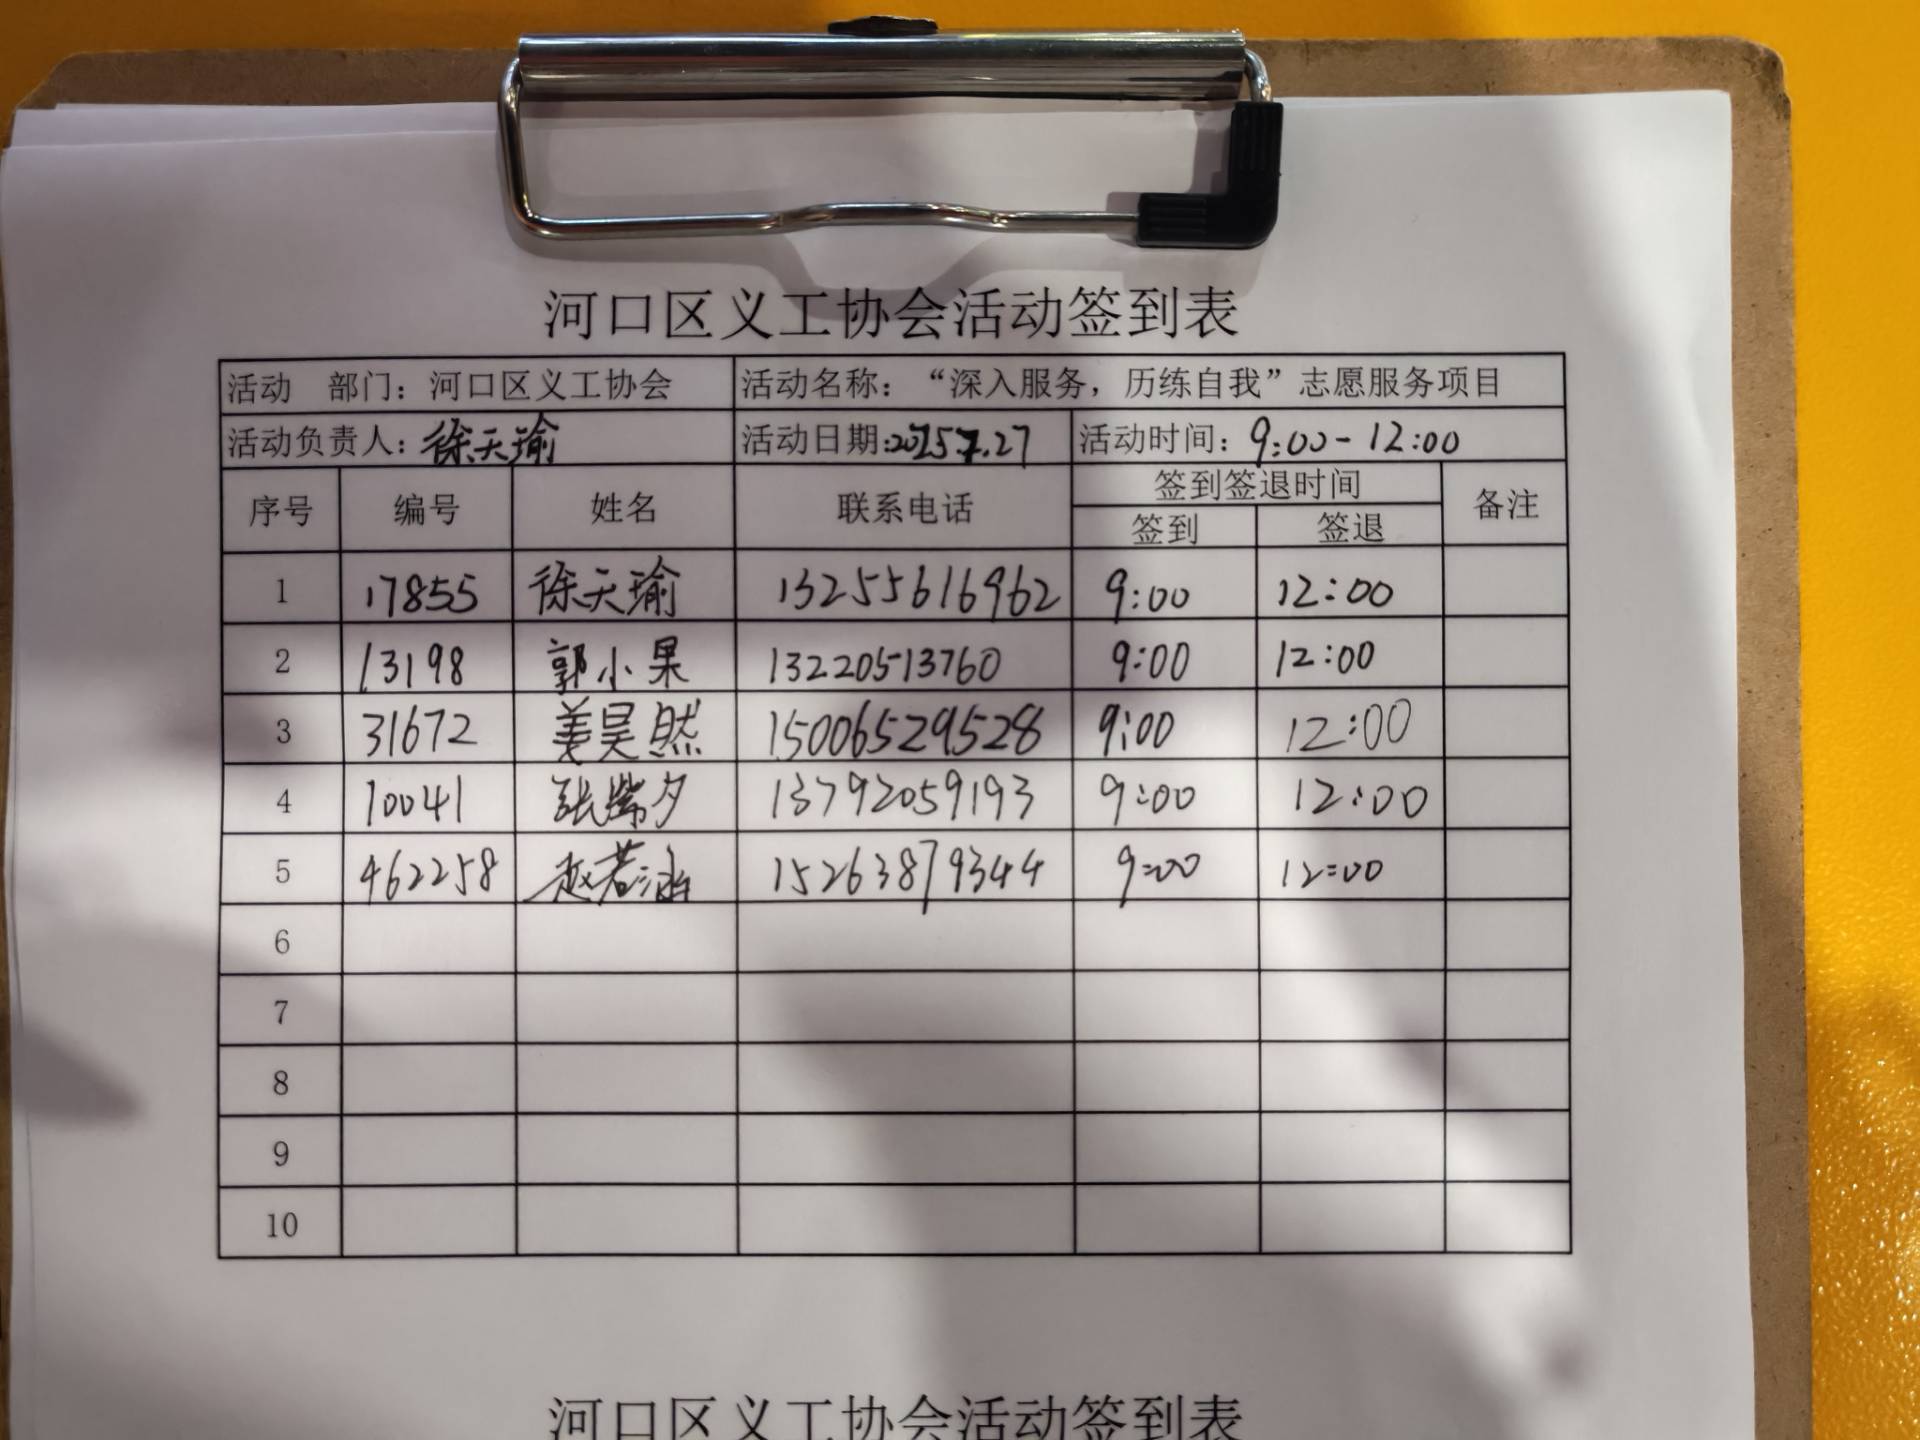 河口区义工协会活动签到表
活动 部门：河口区义工协会 活动名称：“深入服务，历练自我”志愿服务项目
活动负责人：徐天瑜 活动日期：2025.7.27 活动时间：9:00-12:00
序号 编号 姓名 联系电话 签到签退时间 备注
签到 签退
1 17855 徐天瑜 13255616962 9:00 12:00
2 13198 郭小果 13220513760 9:00 12:00
3 31672 姜昊然 15006529528 9:00 12:00
4 10041 张紫夕 13792059193 9:00 12:00
5 462258 赵若涵 15263879344 9:00 12:00
6
7
8
9
10
河口区义工协会活动签到表